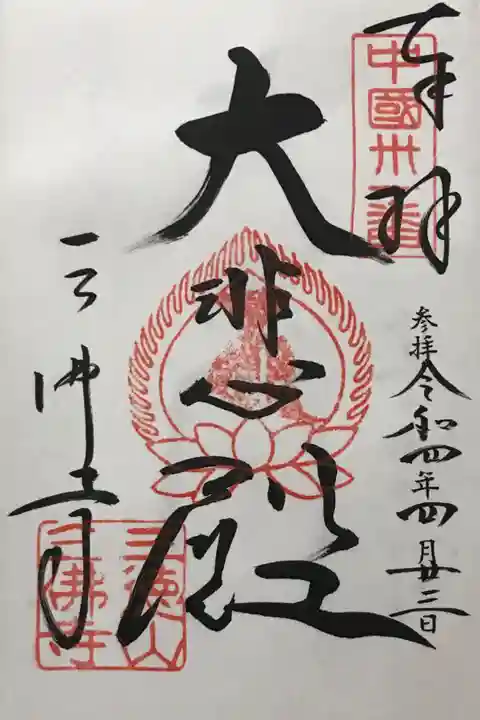 奉拝
中國丗一番
参拝令和四年四月廿三日
大悲殿
三佛寺
三徳山
三佛寺